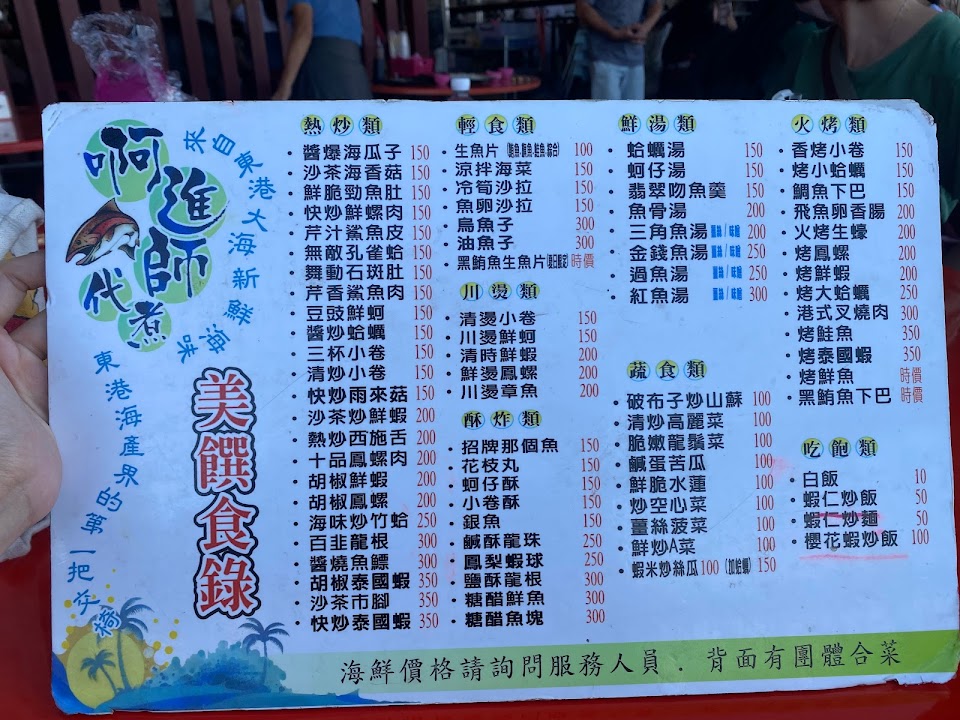 啊進師代煮
來自東港大海新鮮海味
東港海產界的第一把交椅
美饌食錄
熱炒類
・醬爆海瓜子 150
・沙茶海香菇 150
・鮮脆勁魚肚 150
・快炒鮮螺肉 150
・芹汁鯊魚皮 150
・無敵孔雀蛤 150
・舞動石斑肚 150
・芹香鯊魚肉 150
・豆豉鮮蚵 150
・醬炒蛤蠣 150
・三杯小卷 150
・清炒小卷 150
・快炒雨來菇 150
・沙茶炒鮮蝦 200
・熱炒西施舌 200
・十品鳳螺肉 200
・胡椒鮮蝦 200
・胡椒鳳螺 200
・海味炒竹蛤 250
・百韭龍根 300
・醬燒魚鰾 300
・胡椒泰國蝦 350
・沙茶市腳 350
・快炒泰國蝦 350
輕食類
・生魚片 100
・涼拌海菜 150
・冷筍沙拉 150
・魚卵沙拉 150
・烏魚子 300
・油魚子 300
・黑鮪魚生魚片 時價
川燙類
・清燙小卷 150
・川燙鮮蚵 150
・清時鮮蝦 200
・鮮燙鳳螺 200
・川燙章魚 200
酥炸類
・招牌那個魚 150
・花枝丸 150
・蚵仔酥 150
・小卷酥 150
・銀魚 150
・鹹酥龍珠 250
・鳳梨蝦球 250
・鹽酥龍根 300
・糖醋鮮魚 300
・糖醋魚塊 300
鮮湯類
・蛤蠣湯 150
・蚵仔湯 150
・翡翠吻魚羹 150
・魚骨湯 200
・三角魚湯 薑絲/味噌 200
・金錢魚湯 薑絲/味噌 250
・過魚湯 薑絲/味噌 250
・紅魚湯 薑絲/味噌 300
蔬食類
・破布子炒山蘇 100
・清炒高麗菜 100
・脆嫩龍鬚菜 100
・鹹蛋苦瓜 100
・鮮脆水蓮 100
・炒空心菜 100
・薑絲菠菜 100
・鮮炒A菜 100
・蝦米炒絲瓜100(加蛤蠣)150
火烤類
・香烤小卷 150
・烤小蛤蠣 150
・鯛魚下巴 150
・飛魚卵香腸 200
・火烤生蠔 200
・烤鳳螺 200
・烤鮮蝦 200
・烤大蛤蠣 250
・港式叉燒肉 300
・烤鮭魚 350
・烤泰國蝦 350
・烤鮮魚 時價
・黑鮪魚下巴 時價
吃飽類
・白飯 10
・蝦仁炒飯 50
・蝦仁炒麵 50
・櫻花蝦炒飯 100
海鮮價格請詢問服務人員．背面有團體合菜